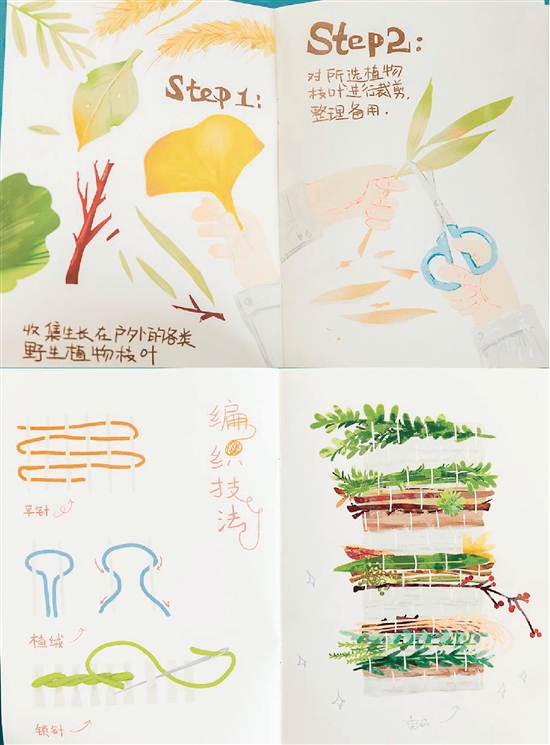 Step 1:
收集生长在户外的各类
野生植物枝叶
Step2:
对所选植物
枝叶进行裁剪,
整理备用.
编织技法
平针
植绒
锁针